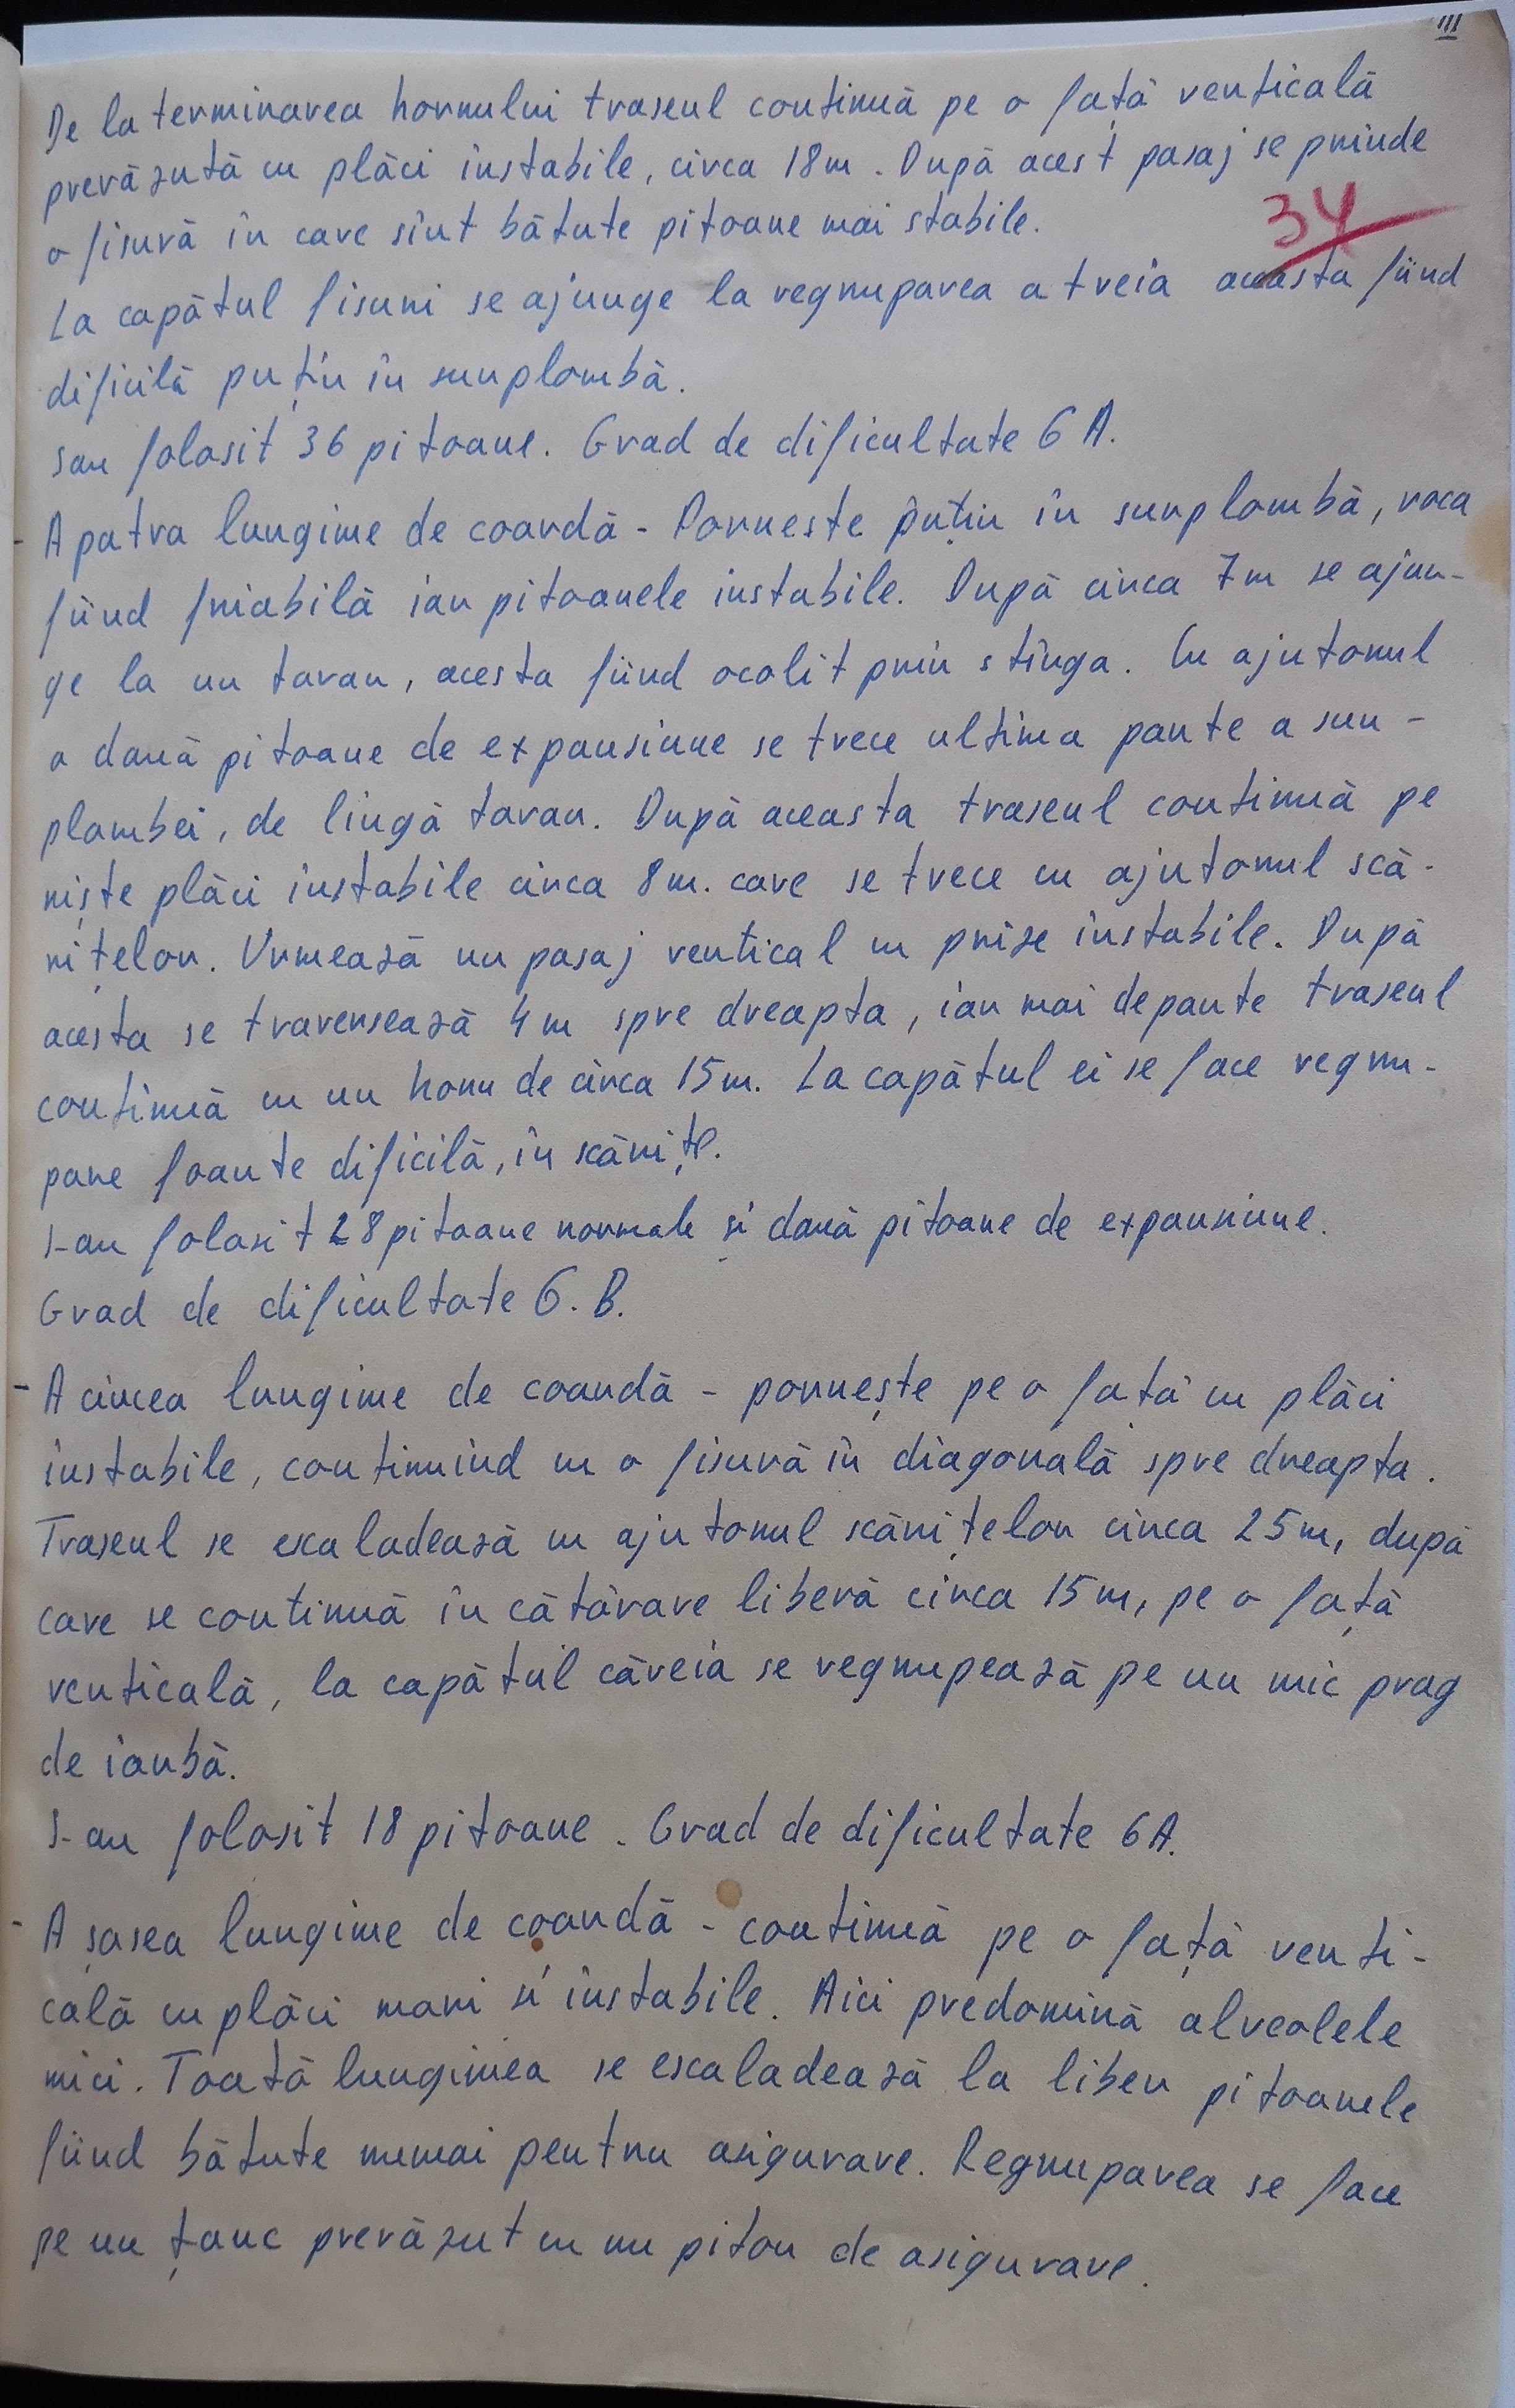 III
De la terminarea hornului traseul continuă pe o față verticală
prevăzută cu plăci instabile, circa 18m. După acest pasaj se prinde
o fisură în care sînt bătute pitoane mai stabile.
34
La capătul fisurii se ajunge la regruparea a treia aceasta fiind
dificilă puțin în surplombă.
Sau folosit 36 pitoane. Grad de dificultate 6 A.
- A patra lungime de coardă - Pornește puțin în surplombă, roca
fiind friabilă iar pitoanele instabile. După circa 7m se ajun-
ge la un tavan, acesta fiind ocolit prin stînga. Cu ajutorul
a două pitoane de expansiune se trece ultima parte a sur-
plombei, de lîngă tavan. După aceasta traseul continuă pe
niște plăci instabile circa 8m. care se trece cu ajutorul scă-
rițelor. Urmează un pasaj vertical cu prize instabile. După
acesta se traversează 4m spre dreapta, iar mai departe traseul
continuă cu un horn de circa 15m. La capătul ei se face regru-
pare foarte dificilă, în scărițe.
S-au folosit 28 pitoane normale și două pitoane de expansiune.
Grad de dificultate 6. B.
- A cincea lungime de coardă - pornește pe o față cu plăci
instabile, continuind cu o fisură în diagonală spre dreapta.
Traseul se escaladează cu ajutorul scărițelor circa 25m, după
care se continuă în cățărare liberă circa 15m, pe o față
verticală, la capătul căreia se regrupează pe un mic prag
de iarbă.
S-au folosit 18 pitoane. Grad de dificultate 6A.
- A șasea lungime de coardă - continuă pe o față verti-
cală cu plăci mari și instabile. Aici predomină alveolele
mici. Toată lungimea se escaladează la liber pitoanele
fiind bătute numai pentru asigurare. Regruparea se face
pe un țanc prevăzut cu un piton de asigurare.